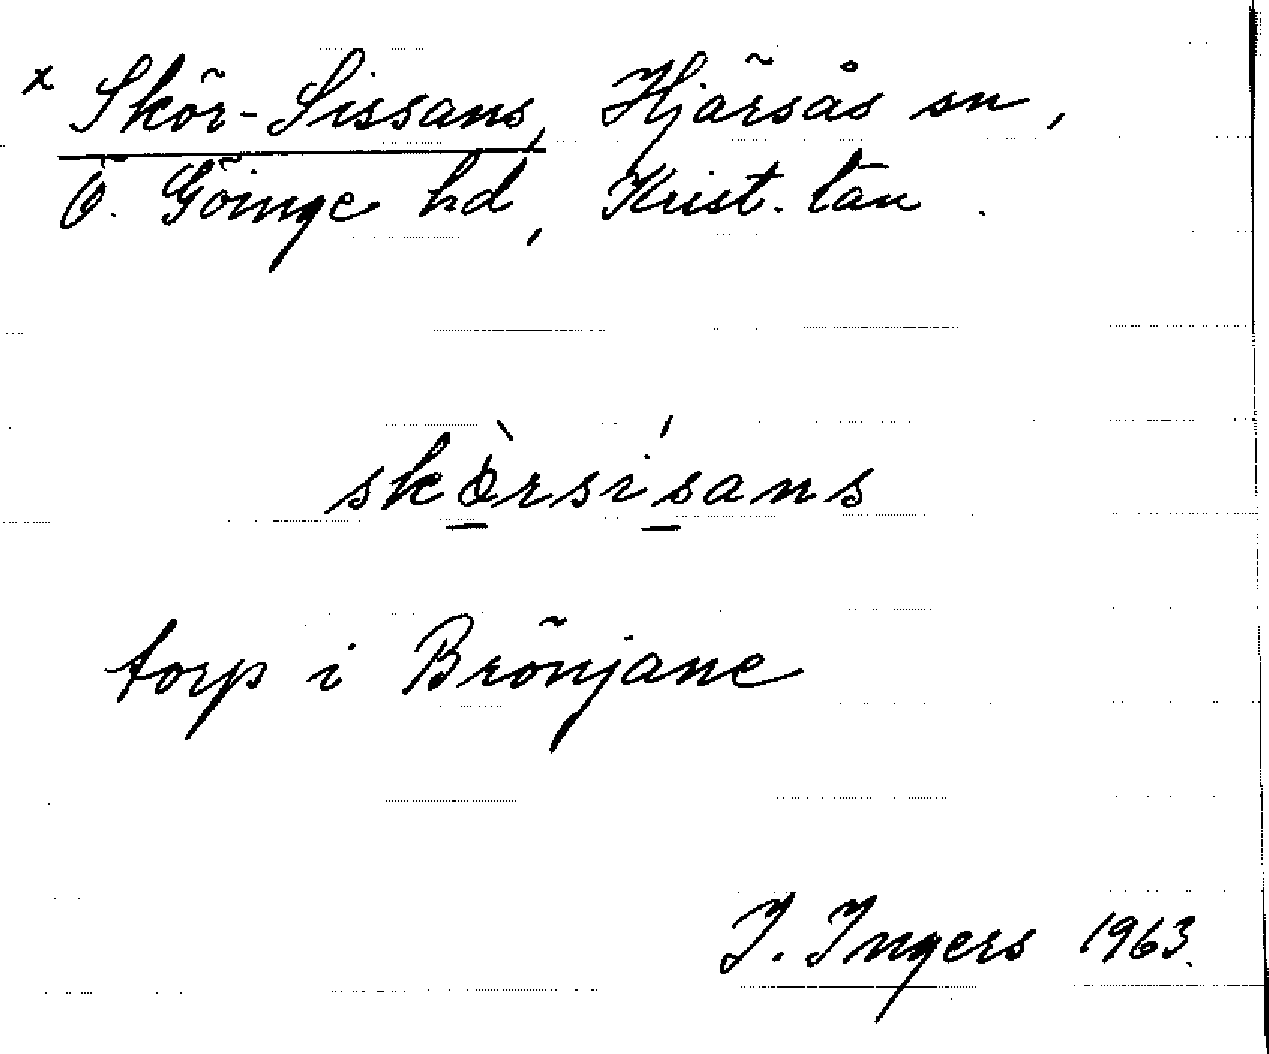 x Skör-Sissans, Hjärsås sn,
Ö. Göinge hd, Krist. län.
skòrsísans
torp i Brönjane
I. Ingers 1963.